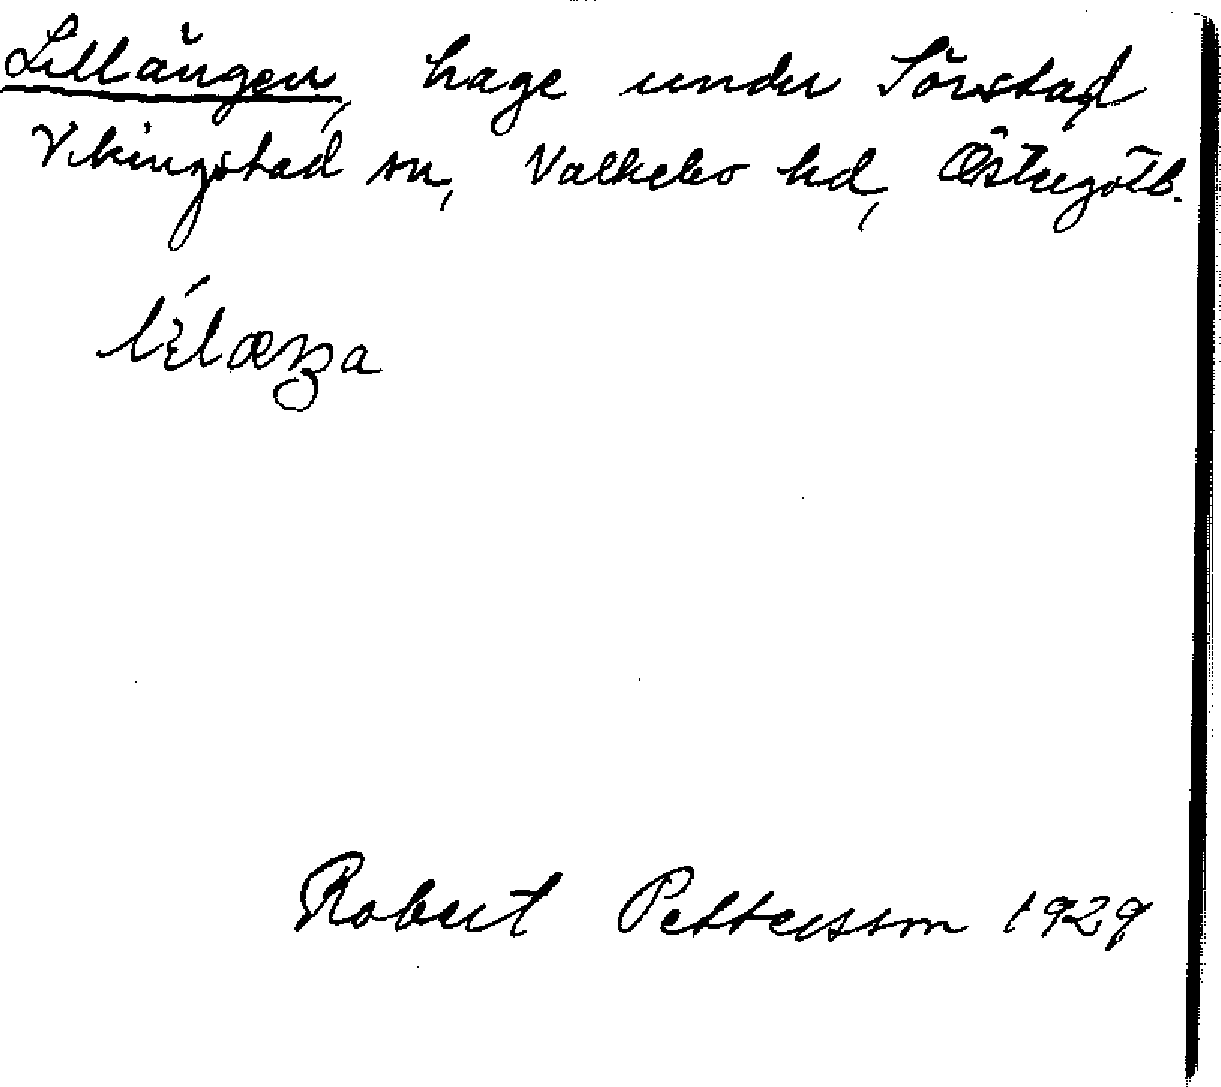 Lillängen, hage under Sörstad
Vikingstad sn, Valkebo hd, Östergötl.
Robert Pettersson 1929